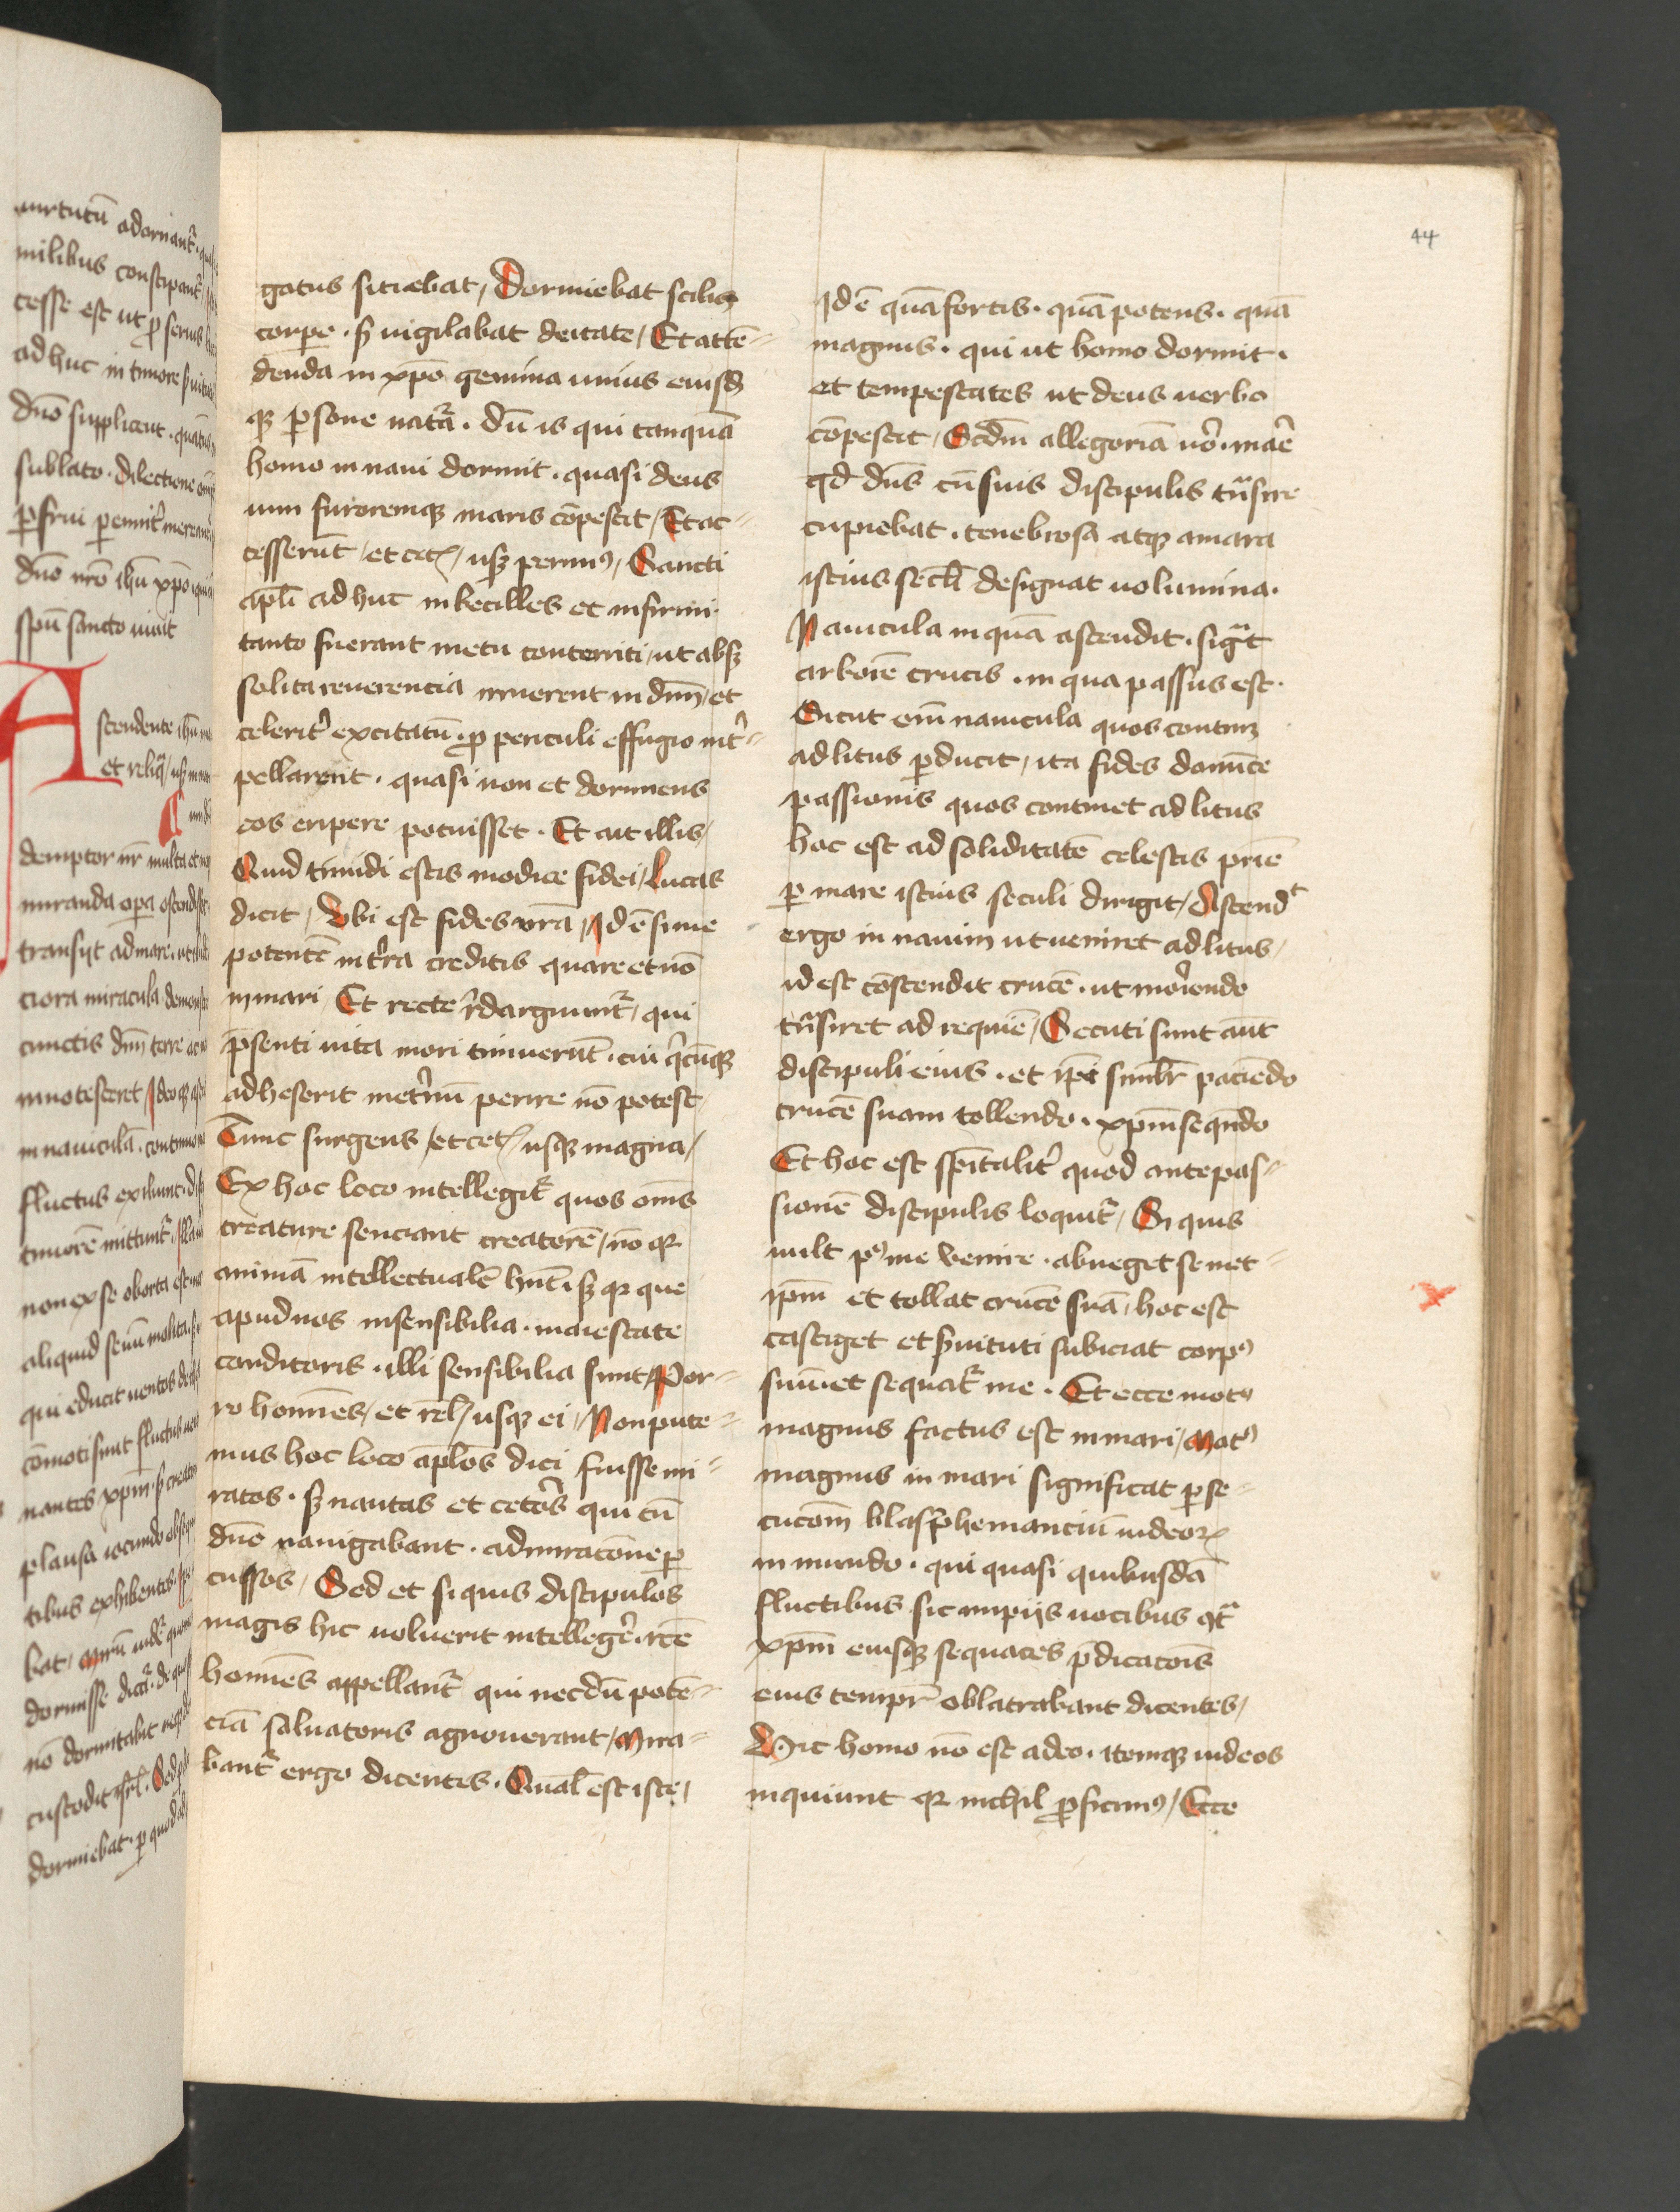 uirtutū adornant᷑ · qua
milibus constipant᷑
cesse est ut p seruis
adhuc in timore
dn̄o supplicent · quatinus
sublato · dilectione
pfrui
dn̄o nr̄o ihū xp̄o qui
spū sancto uiuit
Ascendente ihū
et reliq̄ / usq̢
demptor nr̄ multa et
miranda opa ostendisset
transijt ad mare · ut
ciora miracula demonst
cunctis dn̄m terre
innotesceret / Ideoq̢
in nauiculā · commo
fluctus exiliunt ·
timorē mittunt᷑ ·
non ex se oborta est
aliquid seuū molita
qui educit uentos de
cōmoti sunt fluctus
nantes xp̄m · s creato
plausū iocundo obsequ
tibus exhibentes
bat / Mirū uidet᷑ quom
dormisse dicit᷑ · de quo
nō dormitabit neq̢
custodit isrl̄ · Sed
dormiebat · p quod
44
gatus sitiebat / Dormiebat scilicet
corpe · s uigilabat deitate / Et attē-
denda in xp̄o gemina unius eiusd
q̢ psone nat᷑a · dū is qui tanquā
homo in naui dormit · quasi deus
uim furoremq̢ maris cōpescit / Et ac-
cesserūt / et cet / usq̢ perimꝰ / Sancti
apl̄i adhuc inbecilles et infirmi
tanto fuerant metu conterriti / ut absq̢
solita reuerencia irruerent in dn̄m / et
celerit᷑ excitatū · p periculi effugio int᷑-
pellarent · quasi non et dormiens
eos eripere potuisset · Et ait illis /
Quid timidi estis modice fidei / Lucas
dicit / Vbi est fides ur̄a / Id ē si me
potentē in t᷑ra creditis quare et nō
in mari / Et recte r᷑darguunt᷑ / qui
p̄senti uita mori timuerūt · cui q̄cūq̢
adheserit inet᷑nū perire nō potest /
Tunc surgens / et cet / usq̢ magna /
Ex hoc loco intellegit᷑ quos om̄s
creature senciant creatorē / nō qꝛ
animā intellectualē hn̄t · s qꝛ que
apud nos insensibilia · maiestate
conditoris · illi sensibilia sunt / Por-
ro homines / et rel / usq̢ ei / Non pute-
mus hoc loco apl̄os dici fuisse mi-
ratos · s nautas et cet᷑os qui cū
dn̄o nauigabant · admiracōne p
cussos / Sed et si quis discipulos
magis hic uoluerit intellege᷑ · rc̄e
homīes appellant᷑ qui necdū potē-
ciā saluatoris agnouerant / Mira-
bant᷑ ergo dicentes · Qualis est iste /
Id ē quā fortis · quā potens · quā
magnus · qui ut homo dormit ·
et tempestates ut deus uerbo
cōpescit / Scdm̄ allegoriā uo᷑ · mare
qd dn̄s cū suis discipulis tn̄sire
cupiebat · tenebrosa atq̢ amara
istius secl̄i designat uolumina ·
Nauicula in quā ascendit · sigᵃt
arborē crucis · in qua passus est ·
Sicut em̄ nauicula quos continꝫ
ad litus pducit / ita fides domīce
passionis quos continet ad litus
hoc est ad soliditatē celestis prīe
p mare istius seculi dirigit / Ascendᵗ
ergo in nauim ut ueniret ad litus /
id est cōscendit crucē · ut moriendo
tn̄siret ad requiē / Secuti sunt aūt
discipuli eius · et ip̄i siml̄r paciēdo
crucē suam tollendo · xp̄m seqn̄do
Et hoc est sp̄italit᷑ quod ante pas-
sionē discipulis loquit᷑ / Si quis
uult pꝰ me venire · abneget semet-
ip̄m et tollat crucē suā / hoc est
castiget et s᷑uituti subiciat corpꝰ
suū · et sequat᷑ me · Et ecce motꝰ
magnus factus est in mari / Motꝰ
magnus in mari significat pse-
cucōm blasphemanciū iudeoꝝ
in mundo · qui quasi quibusdā
fluctibus sic impijs uocibus 9t᷑
xp̄m eiusq̢ sequaces p̄dicacōis
eius tempr̄ oblatrabant dicentes /
Hic homo nō est a deo · itemq̢ iudeos
inquiunt qꝛ nichil pficimꝰ / Ecce